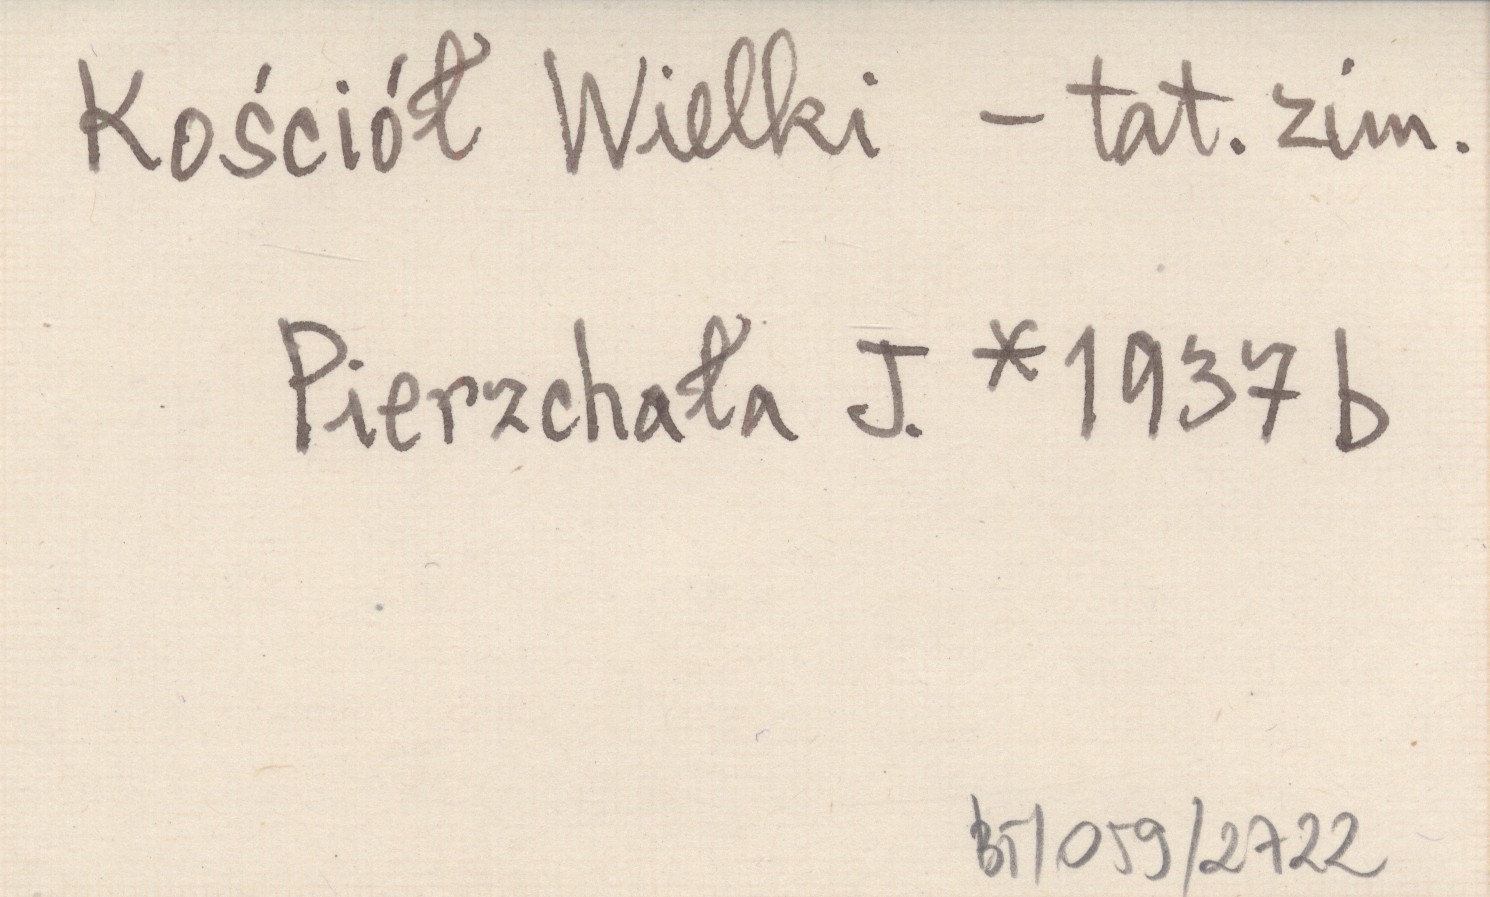 Kościół Wielki - tat. zim.
Pierzchała J. *1937 b
BT/059/2722